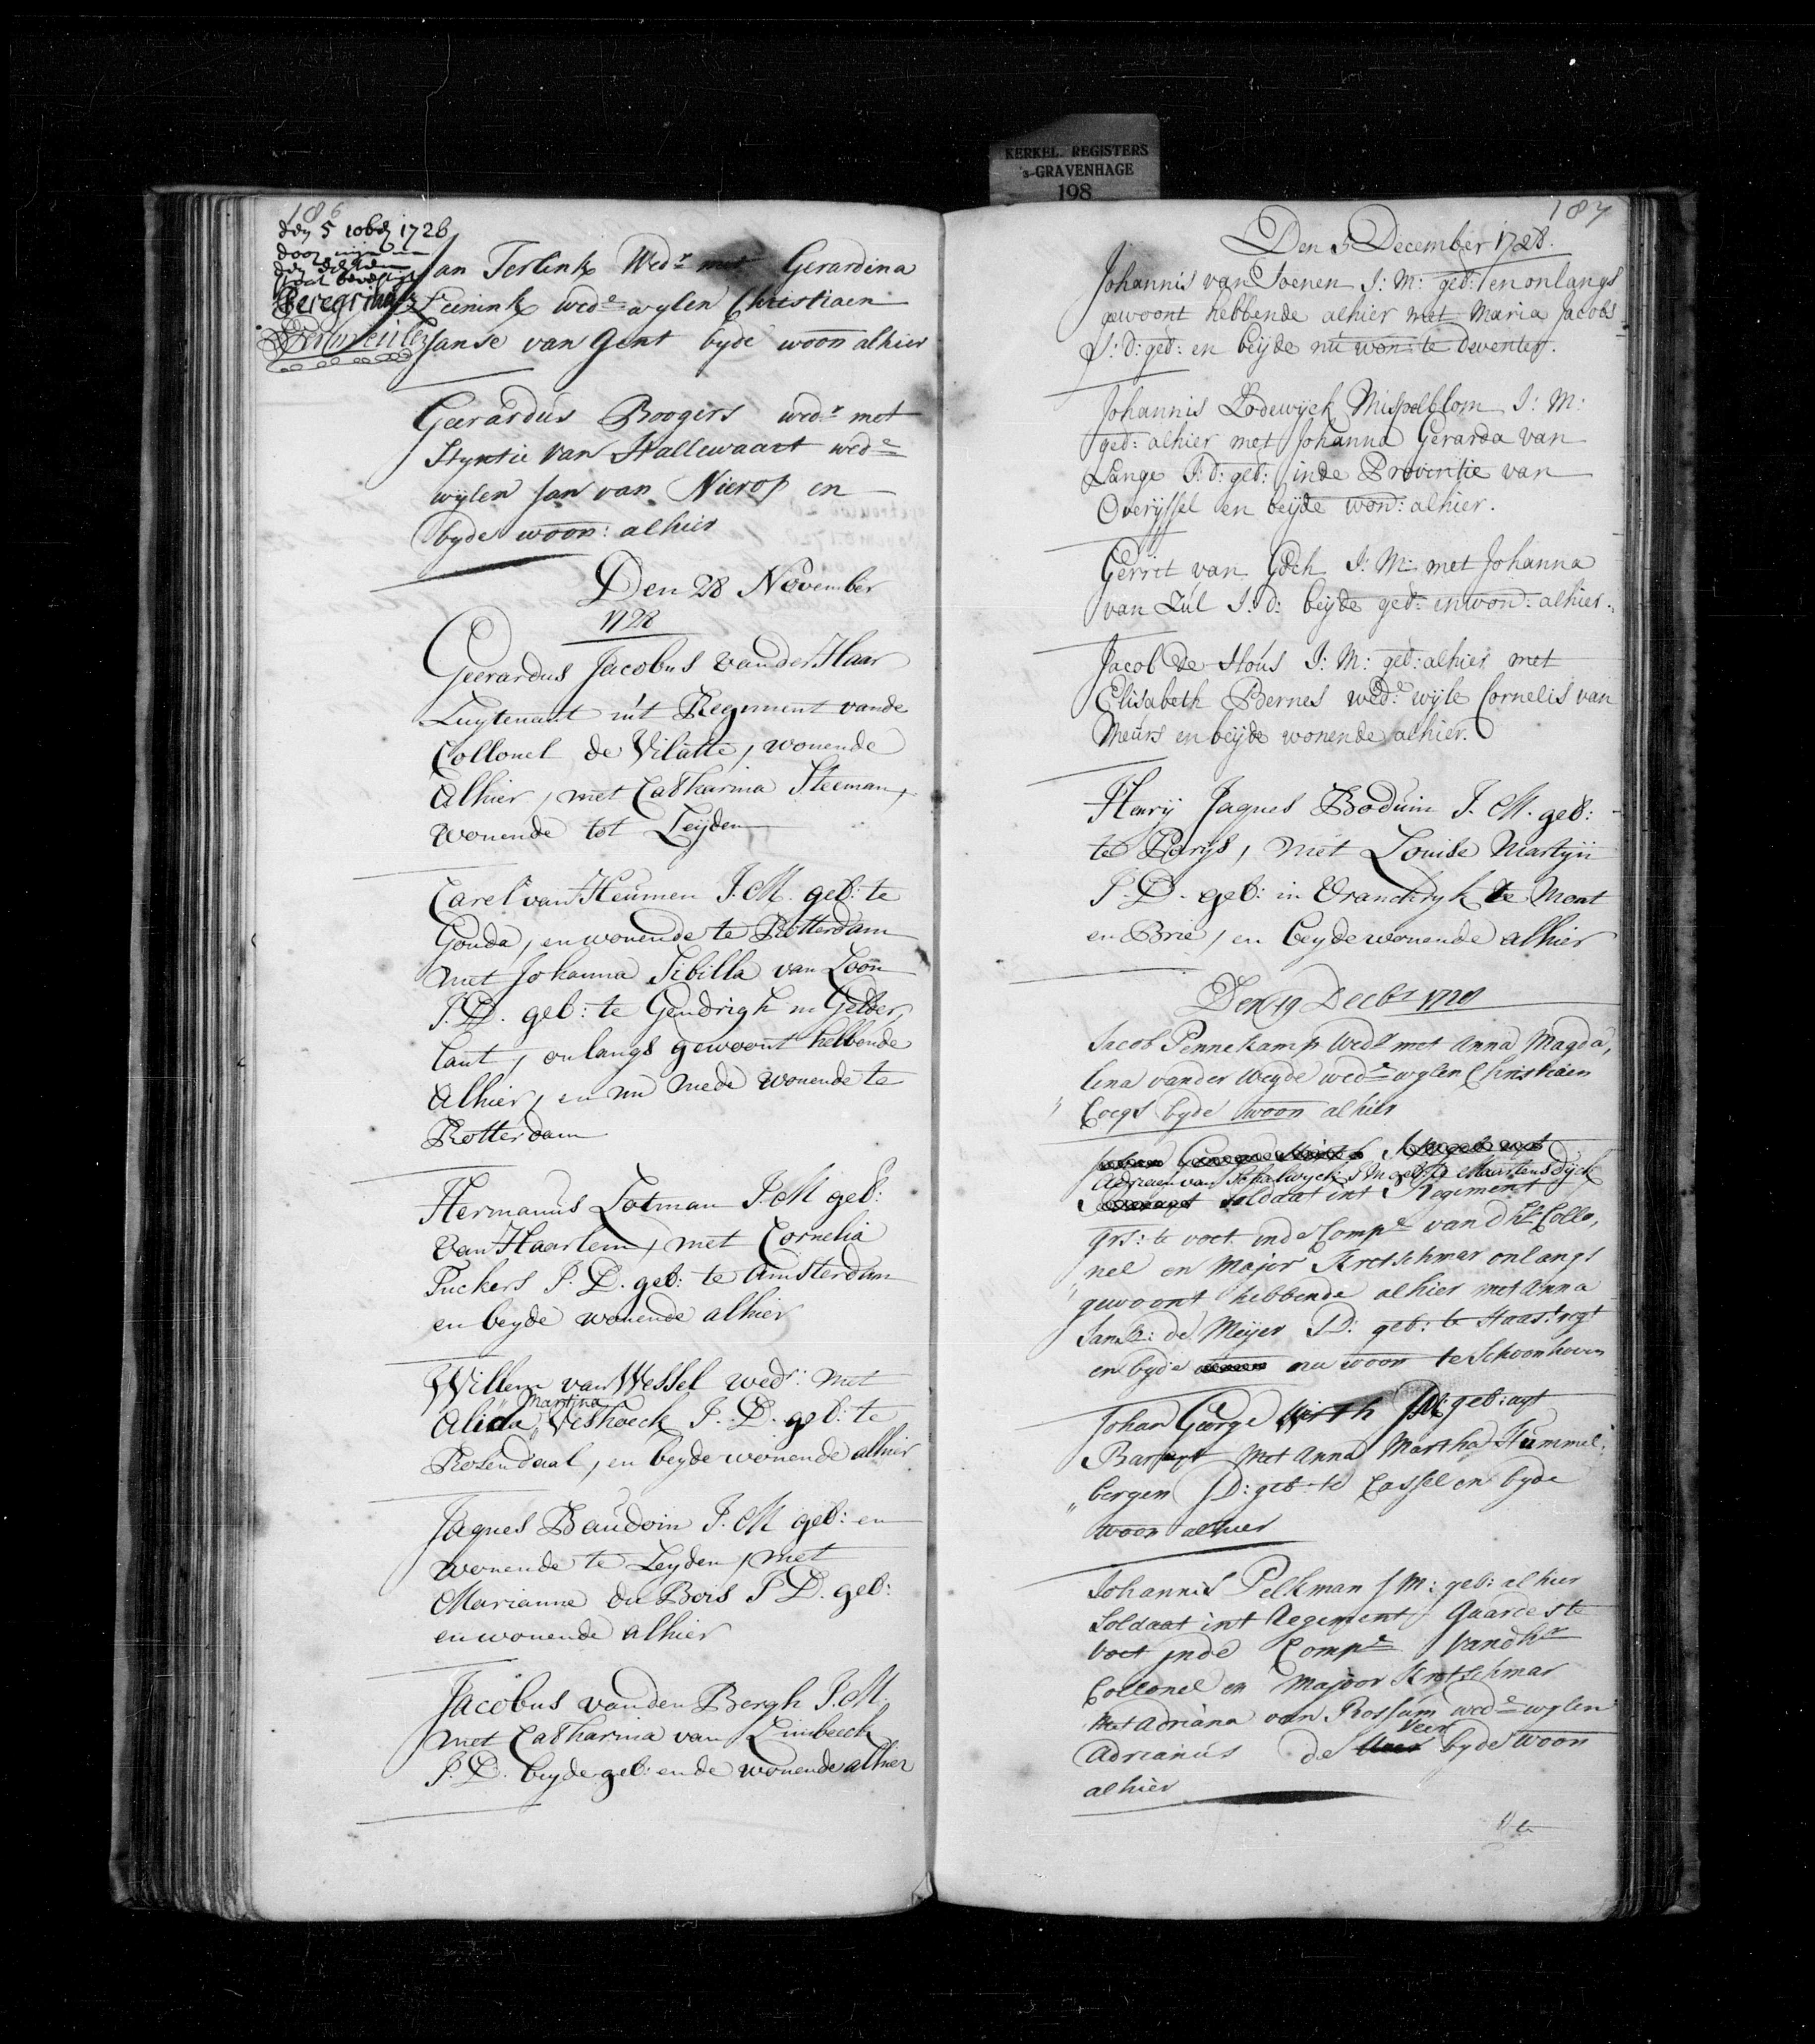 KERKEL. REGISTERS
's-GRAVENHAGE
198
186
den 5 10ber 1728
door mijn in
Peregrinus
Jan Terlink Wedr met Gerardina
Leenink wede wylen Christiaen
Janse van Gent byde woon alhier
Geerardus Boogers wedr met
Styntie van Hallewaart wede
wijlen Jan van Nierop en
byde woon: alhier
Den 28 November
1728
Geerardus Jacobus vander Haar
Luytenant int Regiment vande
Collonel de Vilatte, wonende
Alhier, met Catharina Steeman,
wonende tot Leijden
Carel van Heumen J.M. geb: te
Gouda, en wonende te Rotterdam
met Johanna Sibilla van Loon
J.D. geb: te Gendrigh in Gelder,
lant, onlangs gewoont hebbende
Alhier, en nu mede wonende te
Rotterdam
Hermanus Lotman J.M geb:
van Haarlem, met Cornelia
Tuckers J.D. geb: te Amsterdam
en beyde wonende alhier
Willem van Wessel wedr: met
Martina
Alida, Veshoeck J.D. geb: te
Rosendaal, en beyde wonende alhier
Jaques Baudoin J.M geb: en
wonende te Leyden, met
Marianne du Bois J D. geb:
en wonende alhier
Jacobus vanden Bergh J.M.
met Catharina van Limbeeck
J.D. beyde geb: ende wonende alhier
187
Den 5 December 1728.
Johannis van Soenen J: M: geb: en onlangs
gewoont hebbende alhier met Maria Jacobs
J: D: geb: en beijde nu won: te Deventer.
Johannis Lodewijck Mispelblom J: M:
geb: alhier met Johanna Gerarda van
Lange J: d: geb: inde Provintie van
Overijssel en beijde won: alhier.
Gerrit van Goch J: M: met Johanna
van Zul J: d: beijde geb: en won: alhier.
Jacob de Hous J: M: geb: alhier met
Elisabeth Bernes wede: wijle Cornelis van
Meurs en beijde wonende alhier.
Henry Jaques Boduin J. M. geb:
te Parys, met Louise Martyn
J. D. geb: in Vranckryk te Mont
en Brie, en beyde wonende alhier
Den 19 Decbr 1728
Jacob Pennekamp Wedr met Anna Magda,
lena vander Weyde wede wylen Christiaen
Coegs byde woon alhier
Adriaen van Schalwyck J M geb te Maartensdijck
soldaat int Regiment
grs: te voet inde Compe van d hr Collo,
nel en Major Kretschmar onlangs
gewoont hebbende alhier met Anna
Jans: de Meijer JD: geb: te Haastregt
en byde nu woon te Schoonhoven
Johan George Wirth JM: geb: uyt
met Anna Martha Hummel:
bergen JD: geb: te Cassel en byde
woon alhier
Johannis Pelkman JM: geb: alhier
Soldaat int Regiment Guardes te
voet inde Compe vand hr
Collonel en Majoor Kretschmar
met Adriana van Rossum wede wylen
Veer
Adrianus de byde woon
alhier